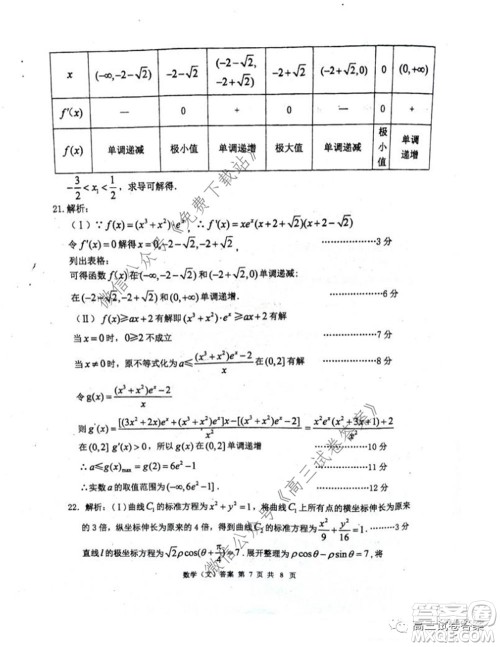 x (-∞,-2-√2) -2-√2 (-2-√2, -2+√2) -2+√2 (-2+√2,0) 0 (0,+∞)
f'(x) — 0 + 0 — 0 +
f(x) 单调递减 极小值 单调递增 极大值 单调递减 极小值 单调递增
-3/2 < x₁ < 1/2，求导可解得.
21.解析:
(1) ∵ f(x)=(x³+x²)eˣ ∴ f'(x)=xeˣ(x+2+√2)(x+2-√2)
令 f'(x)=0 解得 x=0,-2-√2,-2+√2 ……………3 分
列出表格:
可得函数 f(x) 在(-∞,-2-√2)和(-2+√2,0)单调递减;
在(-2-√2,-2+√2)和(0,+∞)单调递增. ……………6 分
(II) f(x)≥ax+2 有解即(x³+x²)·eˣ≥ax+2 有解
当 x=0 时，0≥2 不成立 ……………8 分
当 x≠0 时，原不等式化为 a≤((x³+x²)eˣ-2)/x 在(0,2]有解
令 g(x)=((x³+x²)eˣ-2)/x
则 g'(x)=([(3x²+2x)eˣ+(x³+x²)eˣ]x-[(x³+x²)eˣ-2])/x²=(x²eˣ(x²+3x+1)+2)/x²
在(0,2] g'(x)>0，所以 g(x) 在(0,2]单调递增 ……………10 分
∴ a≤g(x)max=g(2)=6e²-1
∴实数 a 的取值范围为(-∞,6e²-1]. ……………12 分
22. 解析: (1)曲线 C₁ 的标准方程为 x²+y²=1，将曲线 C₁ 上所有点的横坐标伸长为原来
的 3 倍，纵坐标伸长为原来的 4 倍，得到曲线 C₂ 的标准方程为 x²/9+y²/16=1
直线 l 的极坐标方程为 √2ρcos(θ+π/4)=7. 展开整理为 ρcosθ-ρsinθ=7, 将
数学（文）答案 第 7 页 共 8 页
微信公众号《免费下载站》
微信公众号《高三试卷答案》
高三试卷答案